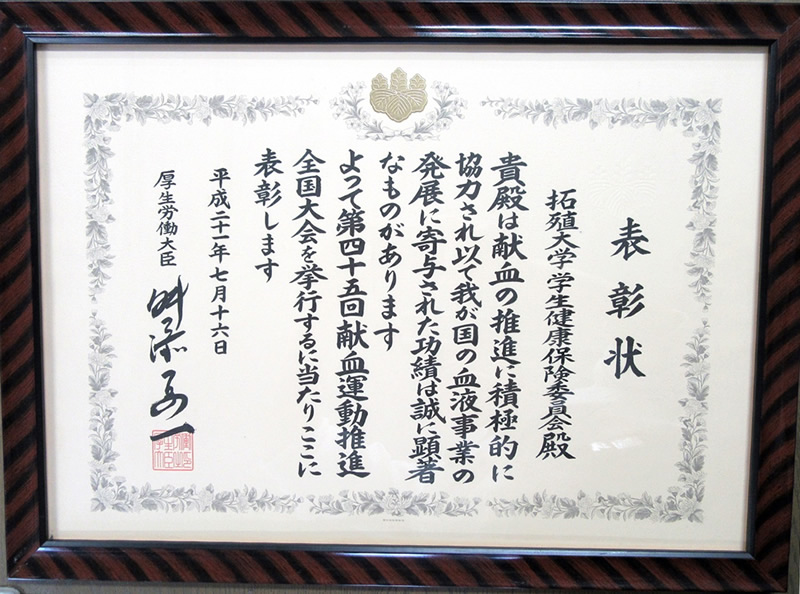 表彰状
拓殖大学学生健康保険委員会殿
貴殿は献血の推進に積極的に
協力され以て我が国の血液事業の
発展に寄与された功績は誠に顕著
なものがあります
よって第四十五回献血運動推進
全国大会を挙行するに当たりここに
表彰します
平成二十一年七月十六日
厚生労働大臣
舛添要一